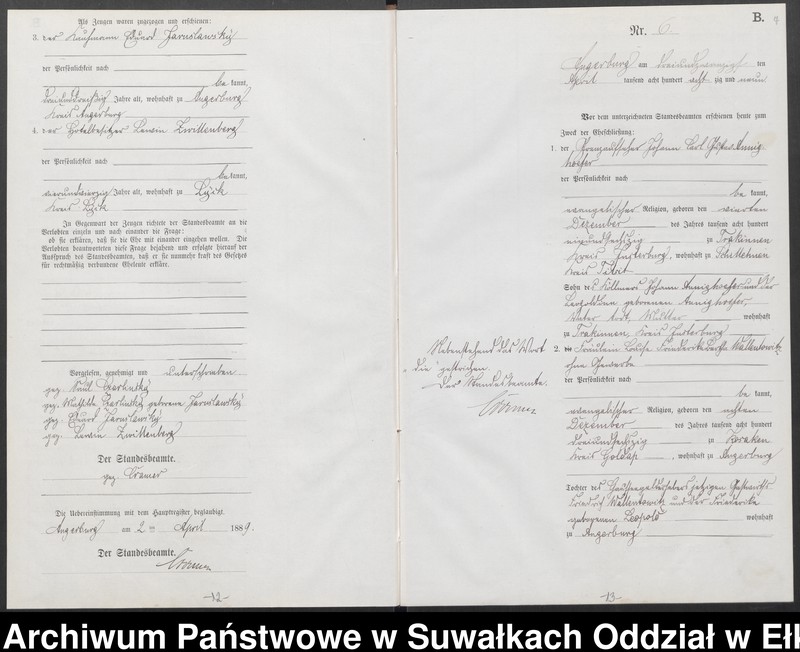 Als Zeugen waren zugezogen und erschienen:
3. der Kaufmann Eduard Jaruslawsky
der Persönlichkeit nach
be kannt,
dreiunddreißig Jahre alt, wohnhaft zu Angerburg
Kreis Angerburg
4. der Hotelbesitzer Lewin Zwillenberg
der Persönlichkeit nach
be kannt,
vierundvierzig Jahre alt, wohnhaft zu Lyck
Kreis Lyck
In Gegenwart der Zeugen richtete der Standesbeamte an die
Verlobten einzeln und nach einander die Frage:
ob sie erklären, daß sie die Ehe mit einander eingehen wollen. Die
Verlobten beantworteten diese Frage bejahend und erfolgte hierauf der
Ausspruch des Standesbeamten, daß er sie nunmehr kraft des Gesetzes
für rechtmäßig verbundene Eheleute erkläre.
Vorgelesen, genehmigt und unterschrieben
gez.
gez. Mathilde geborene Jaruslawsky
gez. Eduard Jaruslawsky
gez. Lewin Zwillenberg
Der Standesbeamte.
gez. Cramer
Die Uebereinstimmung mit dem Hauptregister beglaubigt.
Angerburg am 2 ten April 1889.
Der Standesbeamte.
Cramer
-12-
B.
9
Nr. 6.
Angerburg am dreiundzwanzigsten
April tausend acht hundert acht zig und neun
Vor dem unterzeichneten Standesbeamten erschienen heute zum
Zweck der Eheschließung:
1. der Grenzaufseher Johann Carl Gustav Annighoefer
der Persönlichkeit nach
be kannt,
evangelischer Religion, geboren den vierten
Dezember des Jahres tausend acht hundert
einundsechszig zu Trakinnen
Kreis Insterburg, wohnhaft zu
Kreis Tilsit
Sohn des Köllmers Johann Annighoefer und der
Leopoldine geborenen Annighoefer,
Vater todt, Mutter wohnhaft
zu Trakinnen, Kreis Insterburg
Nebenstehend das Wort
„die“ gestrichen.
Der Standesbeamte.
Cramer
2. die Fräulein Louise Friederike Bertha Wallentowitz
ohne Gewerbe
der Persönlichkeit nach
be kannt,
evangelischer Religion, geboren den achten
Dezember des Jahres tausend acht hundert
dreiundsechszig zu
Kreis Goldap, wohnhaft zu Angerburg
Tochter des jetzigen Gastwirths
Friedrich Wallentowitz und der Friederike
geborenen Leopold wohnhaft
zu Angerburg
-13-
Archiwum Państwowe w Suwałkach Oddział w Ełk